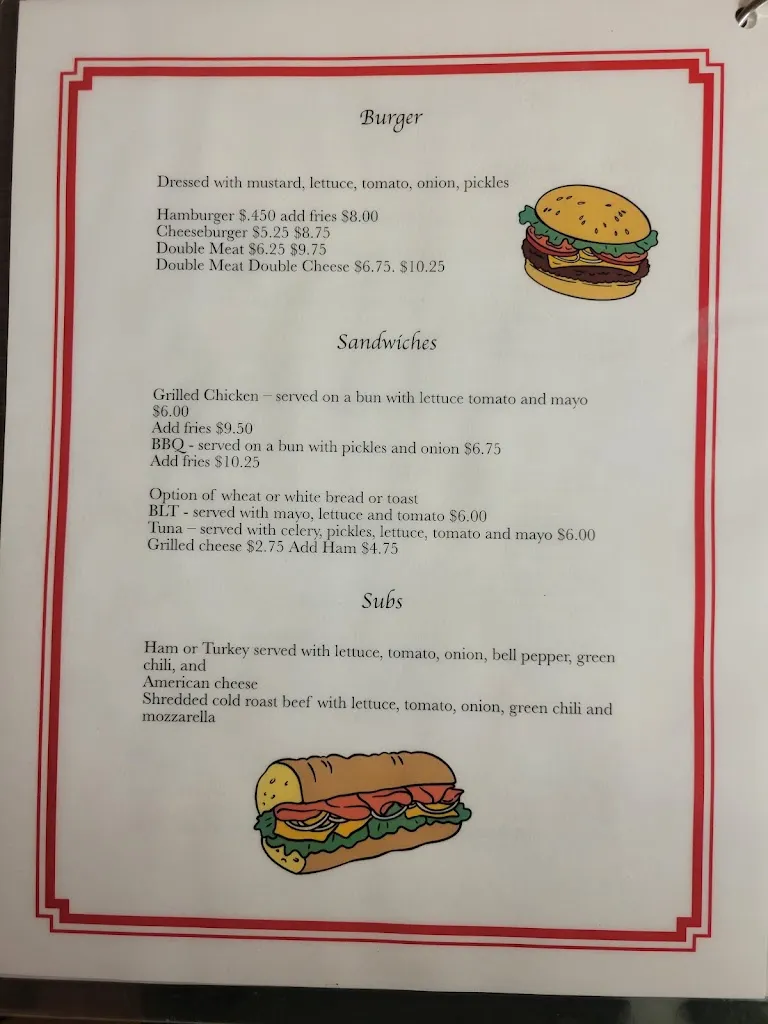 Burger
Dressed with mustard, lettuce, tomato, onion, pickles
Hamburger $.450 add fries $8.00
Cheeseburger $5.25 $8.75
Double Meat $6.25 $9.75
Double Meat Double Cheese $6.75. $10.25
Sandwiches
Grilled Chicken – served on a bun with lettuce tomato and mayo
$6.00
Add fries $9.50
BBQ - served on a bun with pickles and onion $6.75
Add fries $10.25
Option of wheat or white bread or toast
BLT - served with mayo, lettuce and tomato $6.00
Tuna – served with celery, pickles, lettuce, tomato and mayo $6.00
Grilled cheese $2.75 Add Ham $4.75
Subs
Ham or Turkey served with lettuce, tomato, onion, bell pepper, green
chili, and
American cheese
Shredded cold roast beef with lettuce, tomato, onion, green chili and
mozzarella